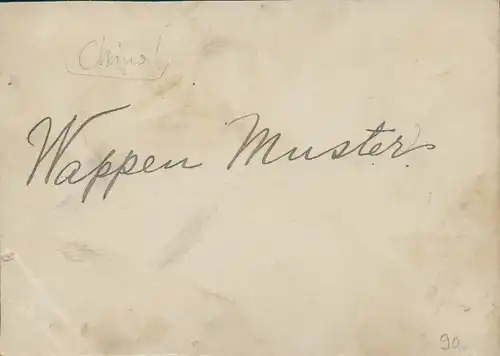 China!
Wappen Muster
90